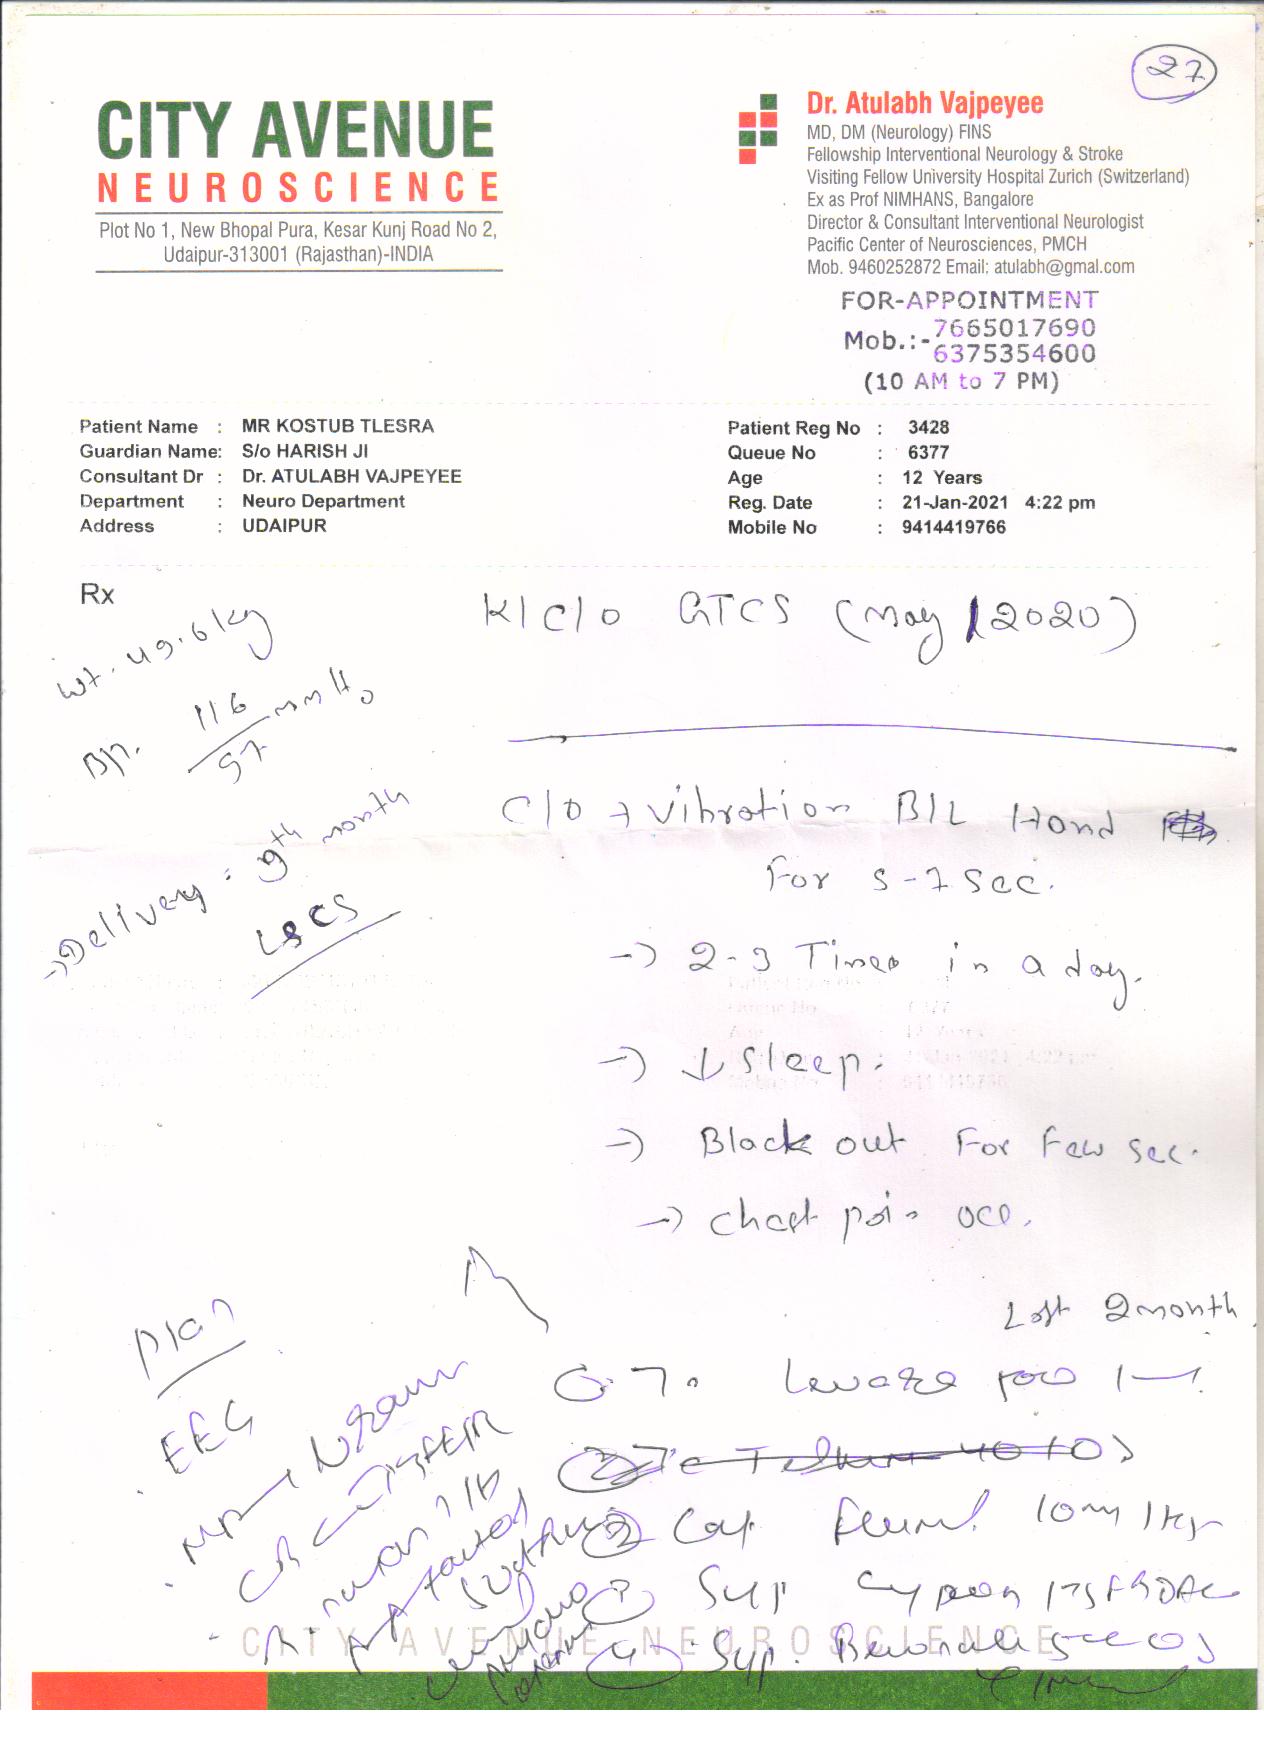 27
CITY AVENUE
NEUROSCIENCE
Plot No 1, New Bhopal Pura, Kesar Kunj Road No 2,
Udaipur-313001 (Rajasthan)-INDIA
Dr. Atulabh Vajpeyee
MD, DM (Neurology) FINS
Fellowship Interventional Neurology & Stroke
Visiting Fellow University Hospital Zurich (Switzerland)
Ex as Prof NIMHANS, Bangalore
Director & Consultant Interventional Neurologist
Pacific Center of Neurosciences, PMCH
Mob. 9460252872 Email: atulabh@gmal.com
FOR-APPOINTMENT
Mob.:- 7665017690
6375354600
(10 AM to 7 PM)
Patient Name : MR KOSTUB TLESRA
Guardian Name: S/o HARISH JI
Consultant Dr : Dr. ATULABH VAJPEYEE
Department : Neuro Department
Address : UDAIPUR
Patient Reg No : 3428
Queue No : 6377
Age : 12 Years
Reg. Date : 21-Jan-2021 4:22 pm
Mobile No : 9414419766
Rx
K/C/O GTCS (May/2020)
Wt. 49.6kg
BP. 116/57 mmHg
C/O → Vibration B/L Hand
For 5-7 sec.
→ Delivery : 9th month
LSCS
→ 2-3 Times in a day.
→ ↓ Sleep.
→ Black out For Few sec.
→ Chest pain occ.
Last 2 month
Plan
EEG
Cap 10
Syp
4 Syp.
CITY AVENUE NEUROSCIENCE